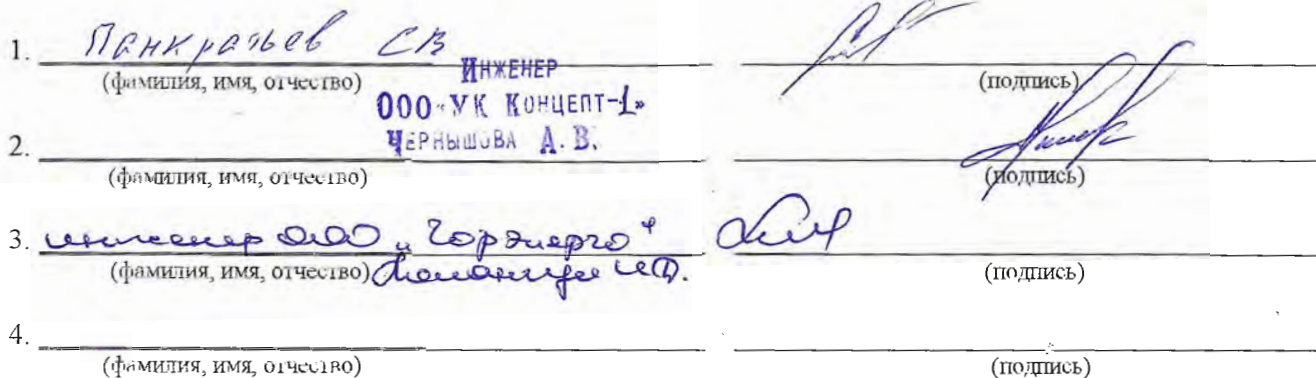 1. Панкратьев СВ
(фамилия, имя, отчество) (подпись)
Инженер
ООО «УК Концепт-1»
Чернышова А. В.
2.
(фамилия, имя, отчество) (подпись)
3. инженер ООО "Горэнерго"
(фамилия, имя, отчество) (подпись)
4.
(фамилия, имя, отчество) (подпись)